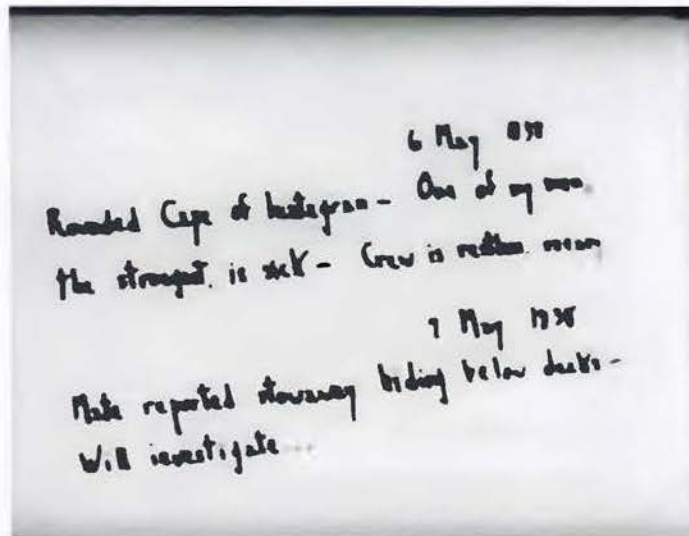 6 May 1838
Rounded Cape of - One of my men,
the strongest, is sick - Crew is restless
9 May 1838
Mate reported stowaway hiding below decks -
Will investigate ...